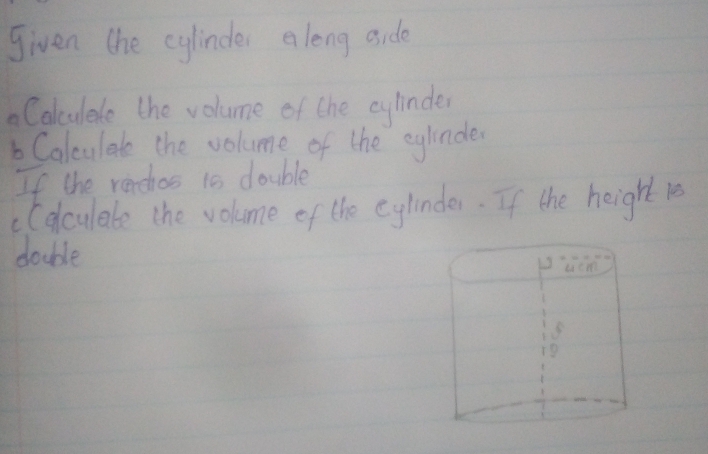 Given the cylinder along side
a Calculate the volume of the cylinder
b Calculate the volume of the cylinder
If the radios is double
c Calculate the volume of the cylinder. If the height is
double
4cm